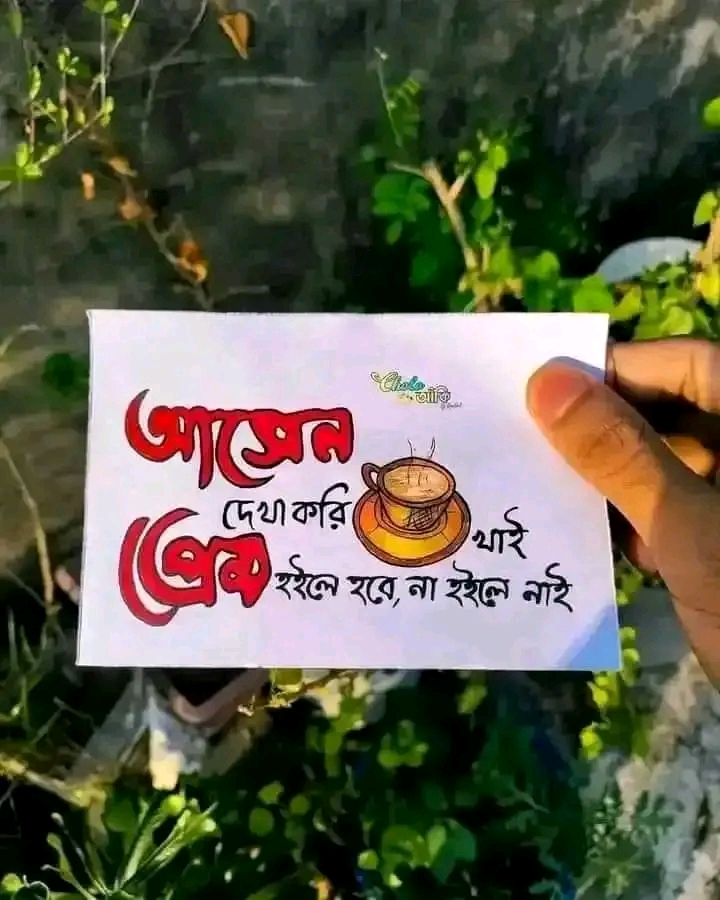 Cholo
আঁকি
আসেন
দেখা করি খাই
প্রেম হইলে হবে, না হইলে নাই